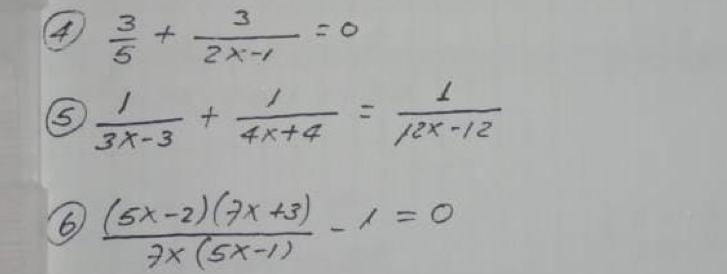 ④ 3/5 + 3/(2x-1) = 0
⑤ 1/(3x-3) + 1/(4x+4) = 1/(12x-12)
⑥ (5x-2)(7x+3)/(7x(5x-1)) - 1 = 0